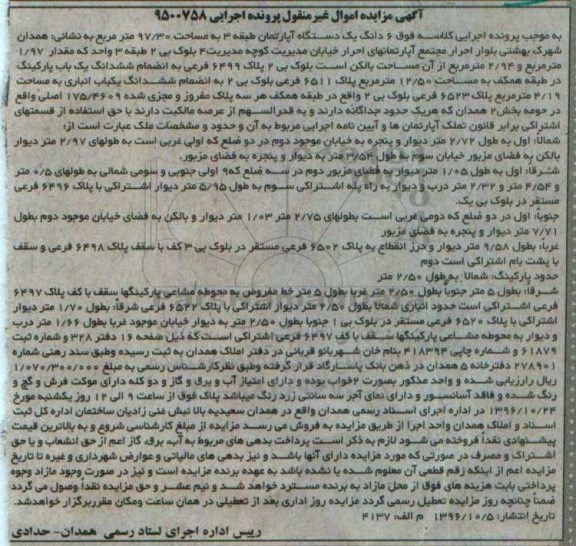 آگهی مزایده اموال غیرمنقول پرونده اجرایی ۹۵۰۰۷۵۸
به موجب پرونده اجرایی کلاسه فوق ۶ دانگ یک دستگاه آپارتمان طبقه ۳ به مساحت ۹۷/۳۰ متر مربع به نشانی: همدان
شهرک بهشتی بلوار احرار مجتمع آپارتمانهای احرار خیابان مدیریت کوچه مدیریت۴ بلوک بی ۲ طبقه ۳ واحد که مقدار ۱/۹۷
مترمربع و ۲/۹۴ مترمربع از آن مساحت بالکن است بلوک بی ۲ پلاک ۶۴۹۹ فرعی به انضمام ششدانگ یک باب پارکینگ
در طبقه همکف به مساحت ۱۲/۵۰ مترمربع پلاک ۶۵۱۱ فرعی بلوک بی ۲ به انضمام ششدانگ یکباب انباری به مساحت
۴/۱۹ مترمربع پلاک ۶۵۲۳ فرعی بلوک بی ۲ واقع در طبقه همکف هر سه پلاک مفروز و مجزی شده ۱۷۵/۴۶۰۹ اصلی واقع
در حومه بخش۲ همدان که هریک حدود جداگانه دارند و به قدرالسهم از عرصه مالکیت دارند با حق استفاده از قسمتهای
اشتراکی برابر قانون تملک آپارتمان ها و آیین نامه اجرایی مربوط به آن و حدود و مشخصات ملک عبارت است از:
شمالا: اول به طول ۲/۷۲ متر دیوار و پنجره به خیابان موجود دوم در دو ضلع که اولی غربی است به طولهای ۲/۹۷ متر دیوار
بالکن به فضای مزبور خیابان سوم به طول ۳/۵۴ متر به دیوار و پنجره به فضای مزبور.
شرقا: اول به طول ۱/۰۵ متر دیوار به فضای مزبور دوم در سه ضلع که۹ اولی جنوبی و سومی شمالی به طولهای ۰/۵ متر
و ۴/۵۴ متر و ۲/۳۲ متر درب و دیوار به راه پله اشتراکی سوم به طول ۵/۹۵ متر دیوار اشتراکی با پلاک ۶۴۹۶ فرعی
مستقر در بلوک بی یک.
جنوبا: اول در دو ضلع که دومی غربی است بطولهای ۲/۷۵ متر ۱/۰۳ متر دیوار و بالکن به فضای خیابان موجود دوم بطول
۷/۷۱ متر دیوار و پنجره به فضای مزبور
غربا: بطول ۹/۵۸ متر دیوار و درز انقطاع به پلاک ۶۵۰۲ فرعی مستقر در بلوک بی ۳ کف با سقف پلاک ۶۴۹۸ فرعی و سقف
با پشت بام اشتراکی است دوم
حدود پارکینگ: شمالا: به طول ۲/۵۰ متر
شرقا: بطول ۵ متر جنوبا بطول ۲/۵۰ متر غربا بطول ۵ متر خط مفروض به محوطه مشاعی پارکینگها سقف با کف پلاک ۶۴۹۷
فرعی اشتراکی است حدود انباری شمالا بطول ۲/۵۰ متر دیوار اشتراکی با پلاک ۶۵۲۲ فرعی شرقا: بطول ۱/۷۰ متر دیوار
اشتراکی با پلاک ۶۵۲۰ فرعی مستقر در بلوک بی ۱ جنوبا بطول ۲/۵۰ متر به دیوار خیابان موجود غربا بطول ۱/۶۶ متر درب
و دیوار به محوطه مشاعی پارکینگها سقف با کف ۶۴۹۷ فرعی اشتراکی است که ذیل صفحه ۱۶ دفتر ۳۲۸ و شماره ثبت
۶۱۸۷۹ و شماره چاپی ۴۱۸۳۹۴ بنام خان شهربانو قربانی در دفتر املاک همدان به ثبت رسیده وطبق سند رهنی شماره
۲۷۸۹۰۱ دفترخانه ۵ همدان در ذهن بانک پاسارگاد قرار گرفته وطبق نظرکارشناس رسمی به مبلغ ۱/۰۷۰/۳۰۰/۰۰۰
ریال ارزیابی شده و واحد مذکور بصورت ۲خواب بوده و دارای امتیاز آب و برق و گاز و دو کله دارای موکت فرش و گچ و
رنگ شده و فاقد آسانسور و دارای نمای آجر سه سانتی زرد رنگ میباشد پلاک فوق از ساعت ۹ الی ۱۲ روز یکشنبه مورخ
۱۳۹۶/۱۰/۲۴ در اداره اجرای اسناد رسمی همدان واقع در همدان سعیدیه بالا نبش غنی زادیان ساختمان اداره کل ثبت
اسناد و املاک همدان واحد اجرا از طریق مزایده به فروش می رسد مزایده از مبلغ کارشناسی شروع و به بالاترین قیمت
پیشنهادی نقداً فروخته می شود لازم به ذکر است پرداخت بدهی های مربوط به آب، برق، گاز اعم از حق انشعاب و یا حق
اشتراک و مصرف در صورتی که مورد مزایده دارای آنها باشد و نیز بدهی های مالیاتی و عوارض شهرداری و غیره تا تاریخ
مزایده اعم از اینکه رقم قطعی آن معلوم شده یا نشده باشد به عهده برنده مزایده است و نیز در صورت وجود مازاد وجوه
پرداختی بابت هزینه های فوق از محل مازاد به برنده مسترد خواهد شد و نیم عشر و حق مزایده نقدا وصول می گردد
ضمناً چنانچه روز مزایده تعطیل رسمی گردد مزایده روز اداری بعد از تعطیلی در همان ساعت ومکان مقرربرگزار خواهدشد.
تاریخ انتشار: ۱۳۹۶/۱۰/۵ م الف: ۴۱۳۷
رییس اداره اجرای اسناد رسمی همدان- حدادی